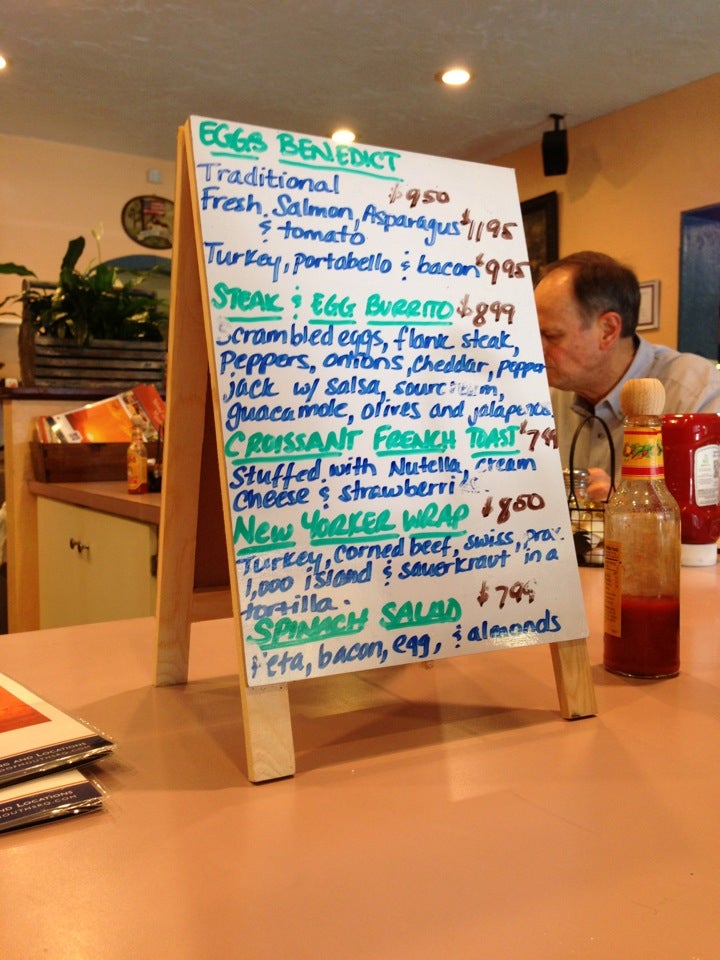 EGGS BENEDICT
Traditional $950
Fresh Salmon, Asparagus $1195
& tomato
Turkey, portabello & bacon $995
STEAK & EGG BURRITO $899
Scrambled eggs, flank steak,
peppers, onions, cheddar, pepper
jack w/ salsa, sour
guacamole, olives and
CROISSANT FRENCH TOAST
Stuffed with Nutella, cream
cheese & strawberri
NEW YORKER WRAP $850
Turkey, corned beef, swiss,
1,000 island & sauerkraut in a
tortilla.
SPINACH SALAD $799
Feta, bacon, egg, & almonds
AND LOCATIONS